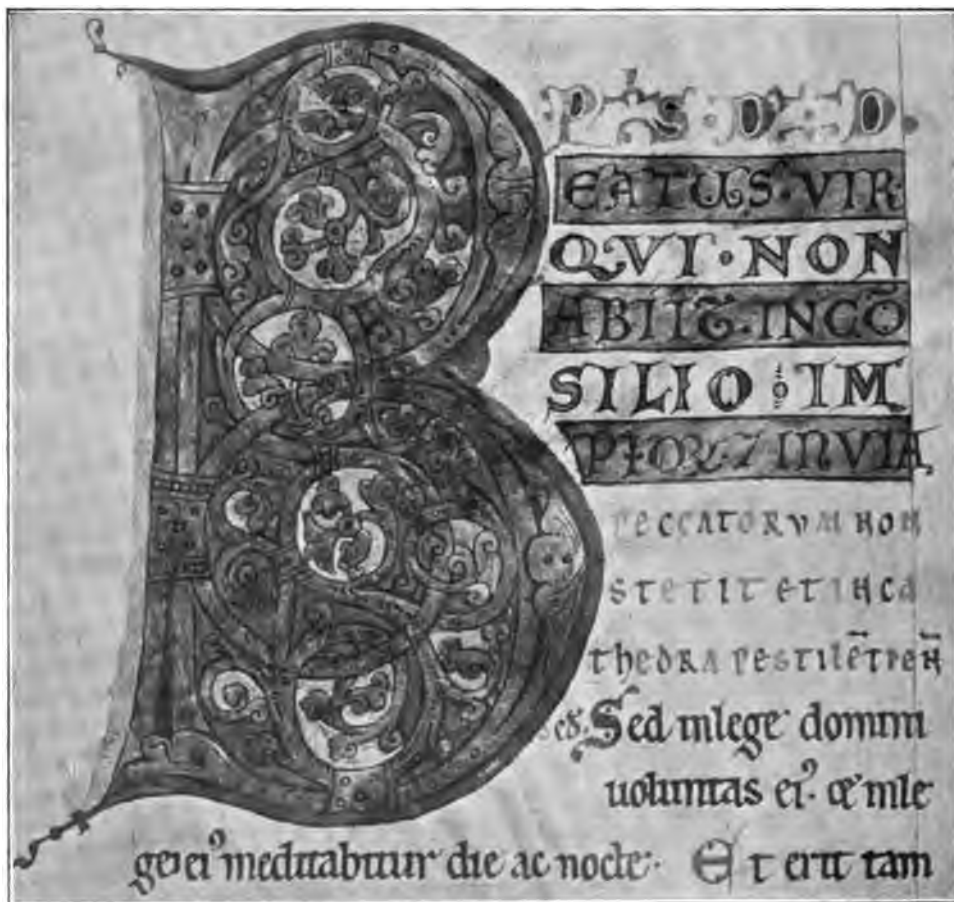 BEATUS·VIR·
QVI·NON
ABIIT̃·INCŌ
SILIO:IM
PIOꝜ·⁊ INVIA
PECCATORVM NON
STETIT ET INCA
THEDRA PESTILĒTIE N̄
sed̃· Sed inlege domini
uoluntas eiꝰ· & inle
ge eiꝰ meditabitur die ac nocte· Et erit tam